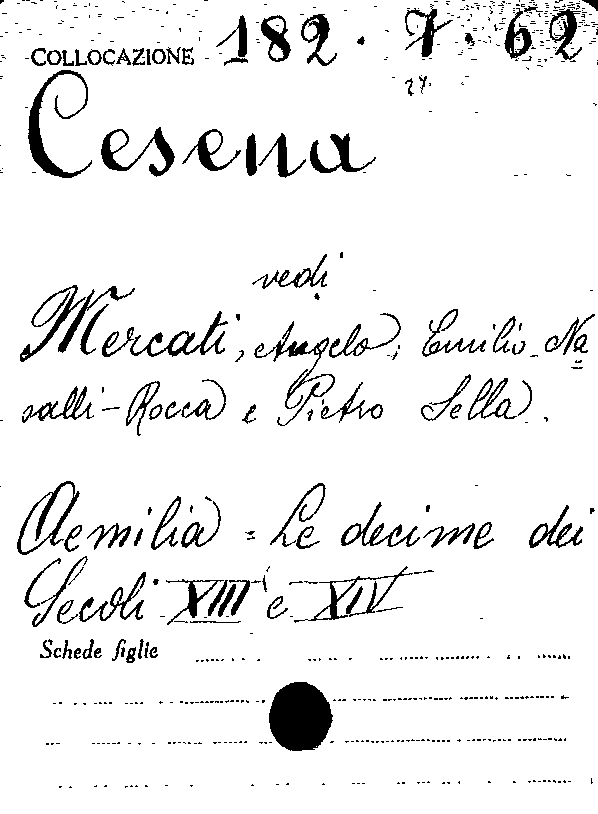 COLLOCAZIONE 182.7.62
27.
Cesena
vedi
Mercati, Angelo; Emilio Na
salli-Rocca e Pietro Sella.
Aemilia = Le decime dei
Secoli XIII e XIV
Schede figlie